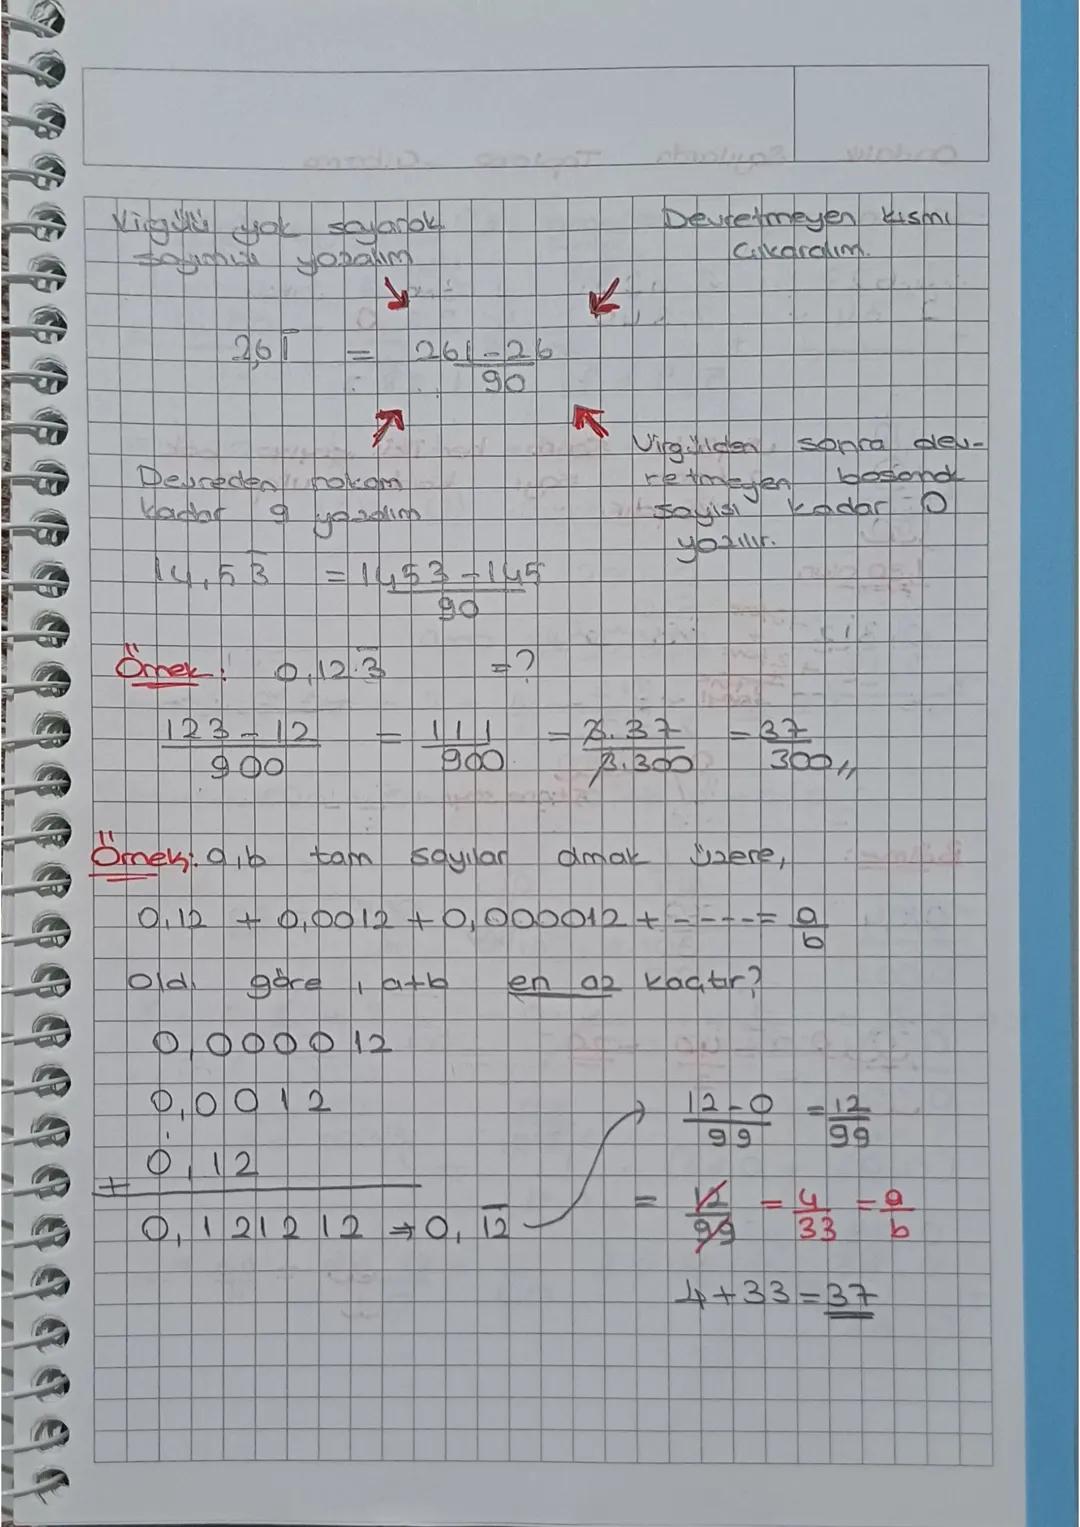 Virgülü yok sayarak
sayımızı yazalım
Devretmeyen kısmı
Çıkaralım.
2,61̅ = 261-26
90
Devreden rakam
kadar 9 yazdım
Virgülden sonra dev-
retmeyen basamak
sayısı kadar 0
yazılır.
14,53̅ = 1453-145
90
Örnek: 0,123̅ =?
123-12 = 111 = 3.37 = 37
900 900 3.300 300,,
Örnek: a,b tam sayılar olmak üzere,
0,12 + 0,0012 + 0,000012 + ----= a
b
Old. göre, a+b en az kaçtır?
0,000012
0,0012
+ 0,12
0,121212 → 0,1̅2̅
12-0 = 12
99 99
= 12 = 4 = a
99 33 b
4+33=37